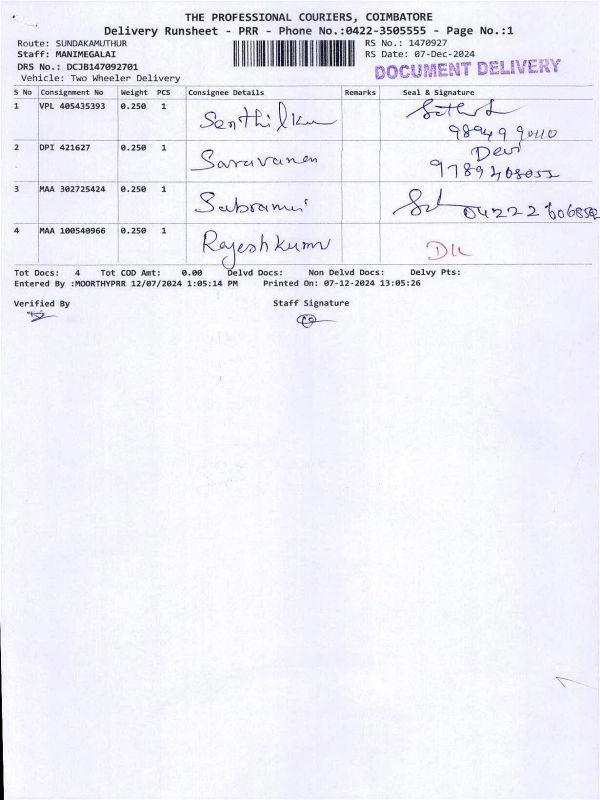 THE PROFESSIONAL COURIERS, COIMBATORE
Delivery Runsheet - PRR - Phone No.:0422-3505555 - Page No.:1
Route: SUNDAKAMUTHUR RS No.: 1470927
Staff: MANIMEGALAI RS Date: 07-Dec-2024
DRS No.: DCJB147092701 DOCUMENT DELIVERY
Vehicle: Two Wheeler Delivery
S No Consignment No Weight PCS Consignee Details Remarks Seal & Signature
1 VPL 405435393 0.250 1 Senthilku
2 DPI 421627 0.250 1 Saravanan Devi
3 MAA 302725424 0.250 1
4 MAA 100540966 0.250 1 Rajeshkumr
Tot Docs: 4 Tot COD Amt: 0.00 Delvd Docs: Non Delvd Docs: Delvy Pts:
Entered By :MOORTHYPRR 12/07/2024 1:05:14 PM Printed On: 07-12-2024 13:05:26
Verified By Staff Signature